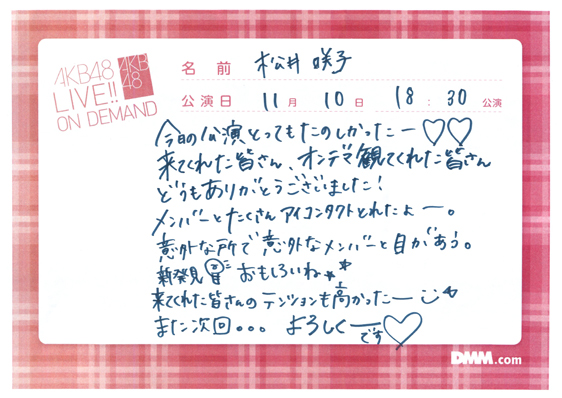 AKB48
LIVE!!
ON DEMAND
AKB
48
名前 松井 咲子
公演日 11月 10日 18:30 公演
今日の公演とってもたのしかったー♡♡
来てくれた皆さん、オンデマ観てくれた皆さん
どうもありがとうございました!
メンバーとたくさんアイコンタクトとれたよー。
意外な所で意外なメンバーと目があう。
新発見 おもしろいね
来てくれた皆さんのテンションも高かったー
また次回。。。 よろしくーです♡
DMM.com